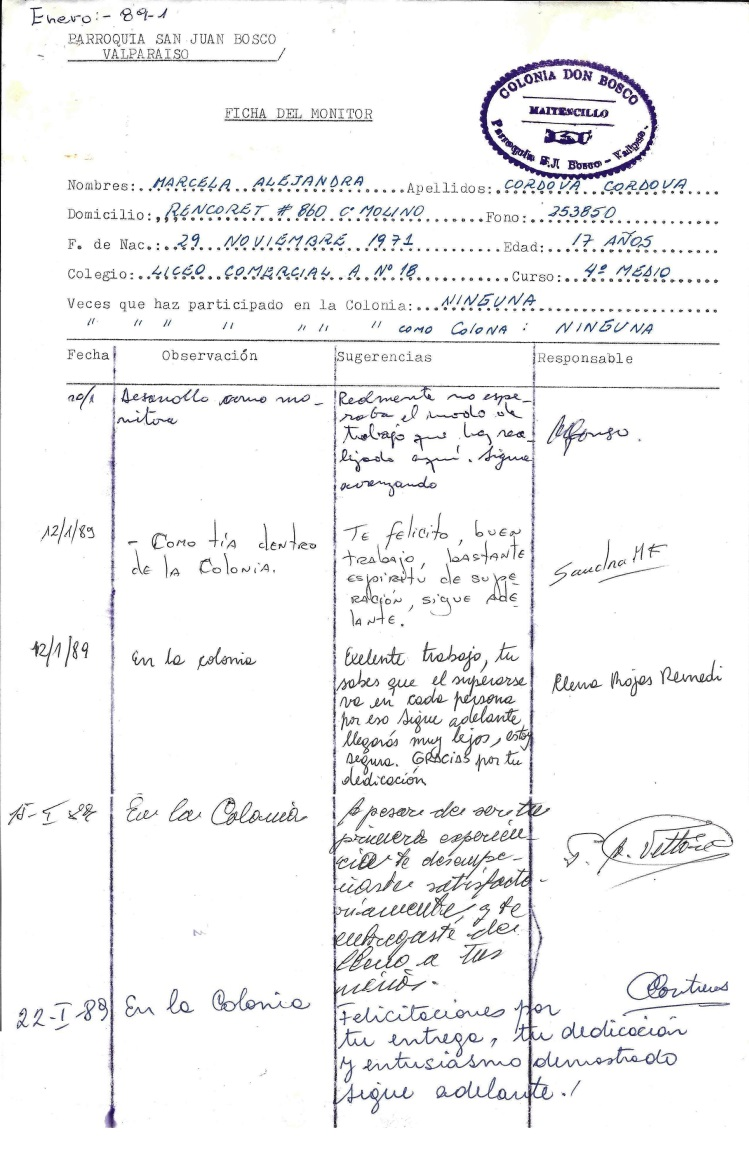 Enero:- 89-1
PARROQUIA SAN JUAN BOSCO
VALPARAISO /
COLONIA DON BOSCO
MAITENCILLO
Parroquia S.J. Bosco - Valpso.
FICHA DEL MONITOR
Nombres: MARCELA ALEJANDRA Apellidos: CORDOVA CORDOVA
Domicilio: RENCORET # 860 Cº MOLINO Fono: 253850
F. de Nac.: 29 NOVIEMBRE 1971 Edad: 17 AÑOS
Colegio: LICEO COMERCIAL A Nº 18 Curso: 4º MEDIO
Veces que haz participado en la Colonia: NINGUNA
" " " " " " " como Colona : NINGUNA
Fecha Observación Sugerencias Responsable
Desarrollo como mo-
nitora
Realmente no espe-
raba el modo de
trabajo que haz rea-
lizado aquí. Sigue
avanzando
Alfonso.
12/1/89
- Como tía dentro
de la Colonia.
Te felicito, buen
trabajo, bastante
espiritu de supe
ración, sigue ade
lante.
Sandra MF
12/1/89
En la colonia
Exelente trabajo, tu
sabes que el superarse
va en cada persona
por eso sigue adelante
llegarás muy lejos, estoy
segura. GRACIAS por tu
dedicación
Elena Rojas Remedi
15-I 89
En la Colonia
A pesar de ser tu
primera experien-
cia te desempe-
ñaste satisfacto-
riamente, y te
entregaste de
lleno a tus
niños.
22-I-89
En la Colonia
Felicitaciones por
tu entrega, tu dedicación
y entusiasmo demostrado
sigue adelante.!
CContreras